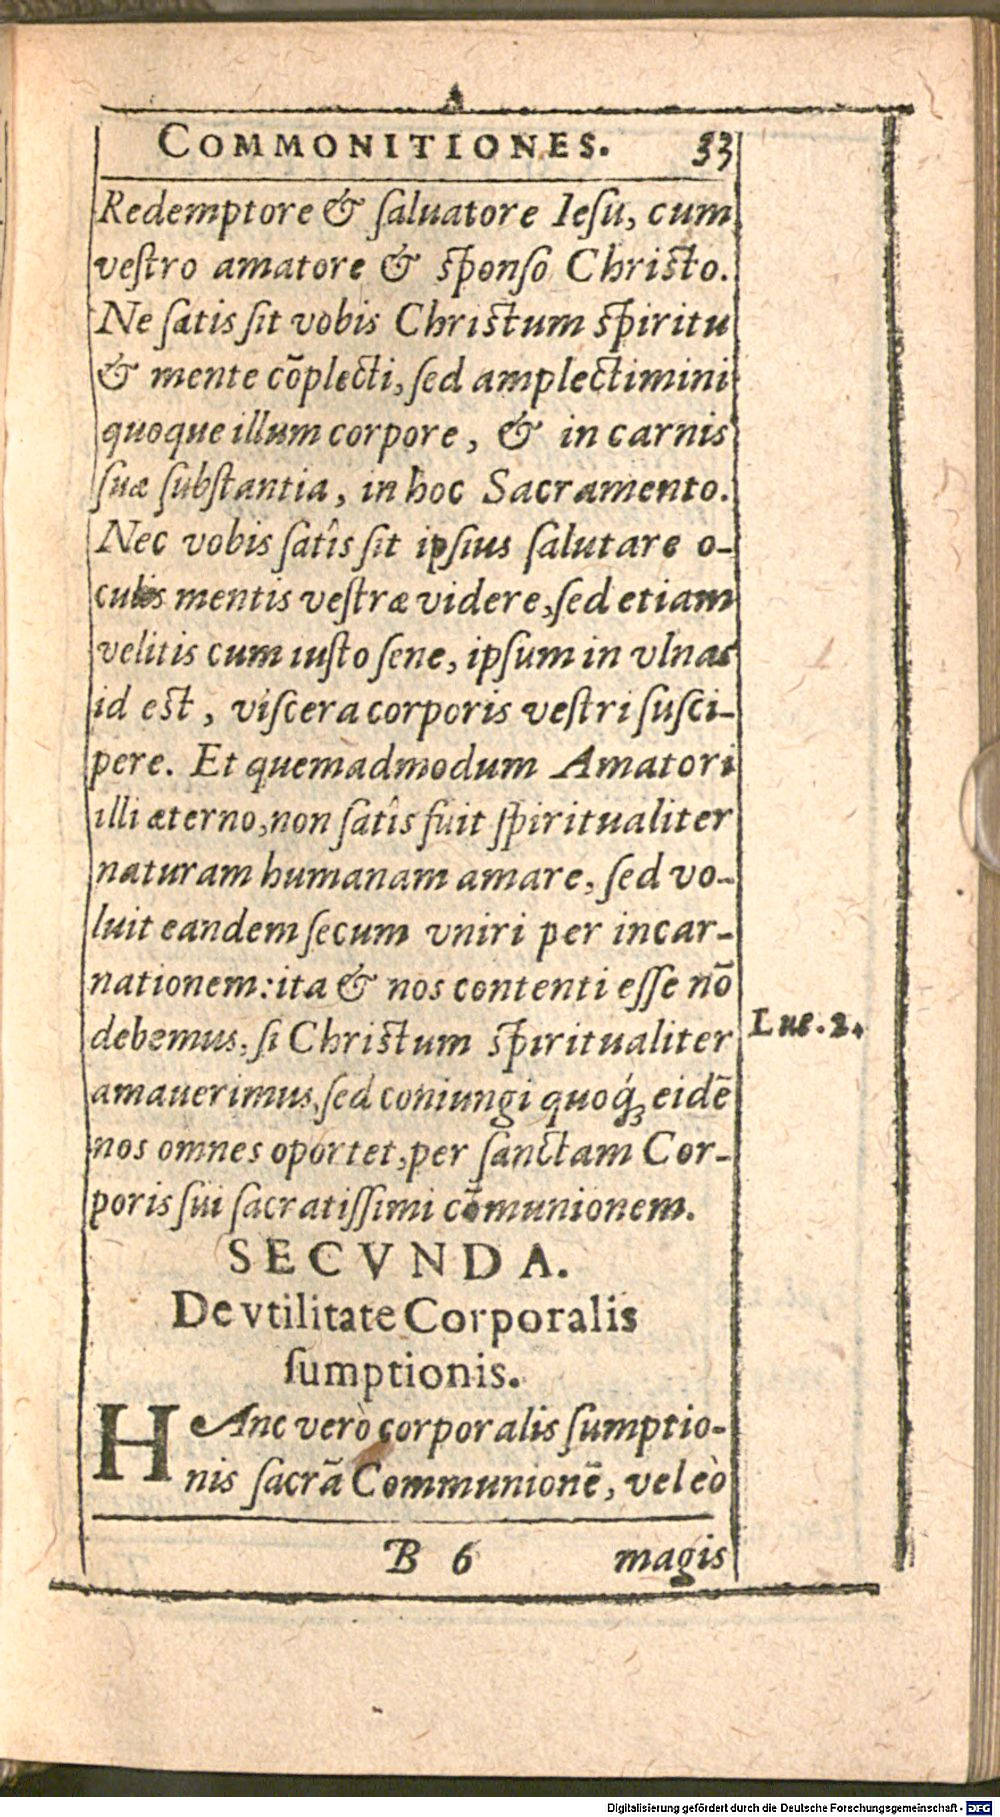 COMMONITIONES. 33
Redemptore & ſaluatore Ieſu, cum
veſtro amatore & ſponſo Chriſto.
Ne ſatis ſit vobis Chriſtum ſpiritu
& mente cōplecti, ſed amplectimini
quoque illum corpore, & in carnis
ſuæ ſubſtantia, in hoc Sacramento.
Nec vobis ſatîs ſit ipſius ſalutare o-
culis mentis veſtræ videre, ſed etiam
velitis cum iuſto ſene, ipſum in vlnas
id eſt, viſcera corporis veſtri ſuſci-
pere. Et quemadmodum Amatori
illi æterno, non ſatîs fuit ſpiritualiter
naturam humanam amare, ſed vo-
luit eandem ſecum vniri per incar-
nationem: ita & nos contenti eſſe nō
debemus, ſi Chriſtum ſpiritualiter
Luc. 2.
amauerimus, ſed coniungi quoq́; eidē
nos omnes oportet, per ſanctam Cor-
poris ſui ſacratiſſimi cōmunionem.
SECVNDA.
De vtilitate Corporalis
ſumptionis.
HAnc verò corporalis ſumptio-
nis ſacrā Communionē, vel eò
B 6 magis
Digitalisierung gefördert durch die Deutsche Forschungsgemeinschaft - DFG